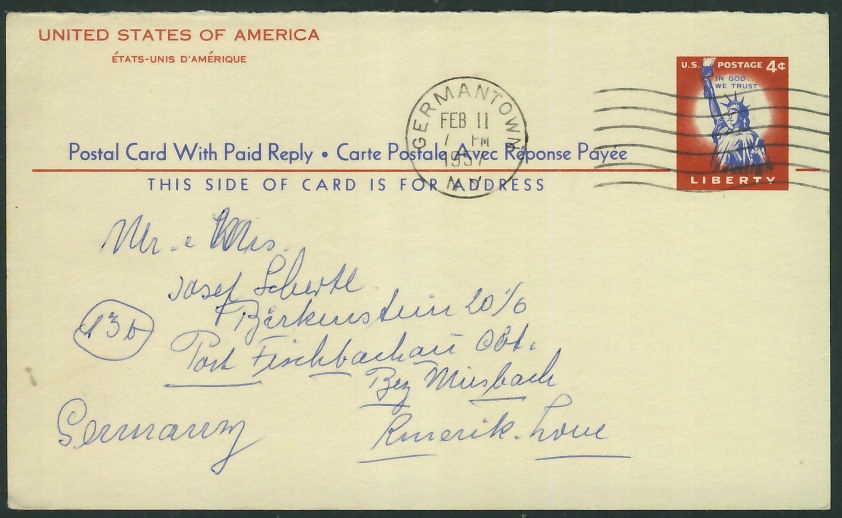 UNITED STATES OF AMERICA
ÉTATS-UNIS D'AMÉRIQUE
U.S. POSTAGE 4¢
IN GOD
WE TRUST
LIBERTY
GERMANTOWN
FEB 11
7 PM
1957
N.Y.
Postal Card With Paid Reply • Carte Postale Avec Réponse Payée
THIS SIDE OF CARD IS FOR ADDRESS
Mr. e Mrs.
Josef
Birkenstein 20
13b
Post Fischbachau
Bez Miesbach
Germany